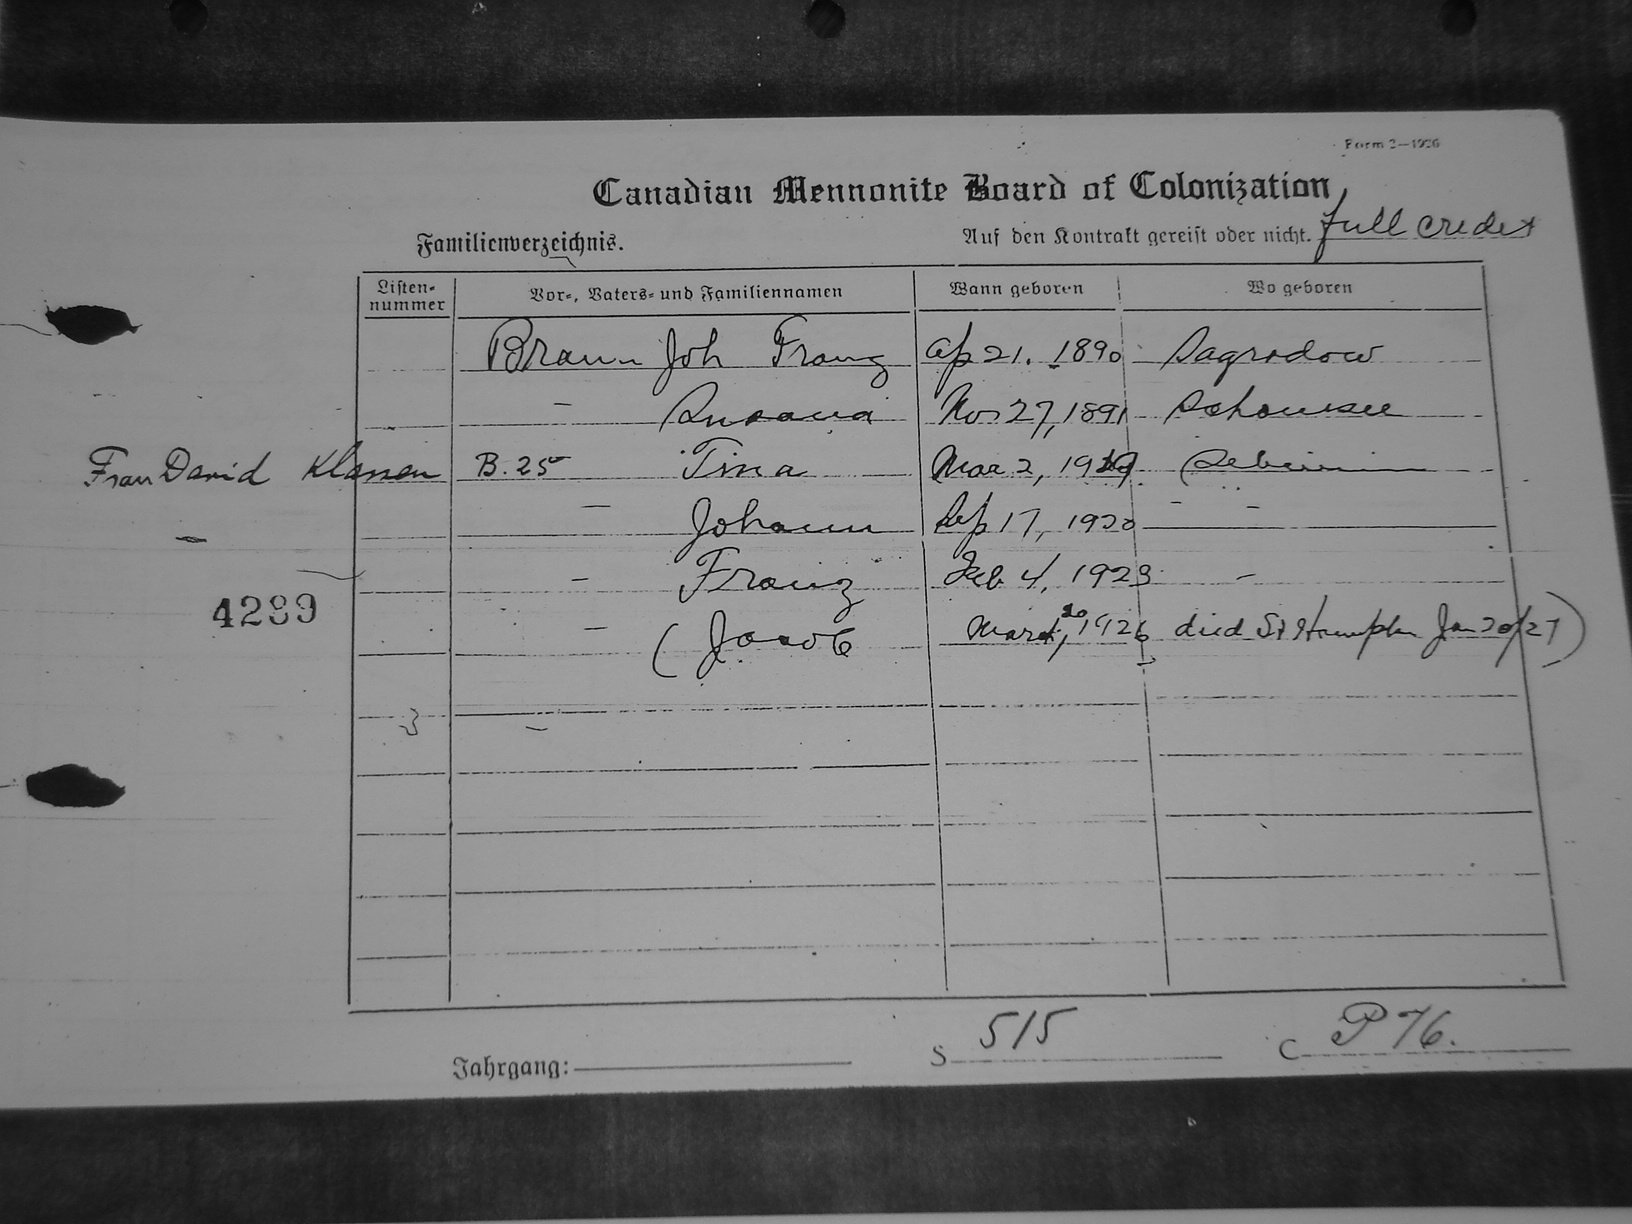 Form 2—1926
Canadian Mennonite Board of Colonization
Familienverzeichnis.
Auf den Kontrakt gereist oder nicht. full credit
Listen-nummer Vor-, Vaters- und Familiennamen Wann geboren Wo geboren
Braun Joh Franz Ap 21. 1890 Sagradow
— Susana Nov 27, 1891 Schonsee
Frau David Klassen B. 25 Tina Mar 2, 19
— Johann Sep 17, 1920 — —
— Franz Feb 4, 1923 —
4289
— (Jacob March 20, 1926 died Jan 20/27)
—
Jahrgang: S 515 C P 76.